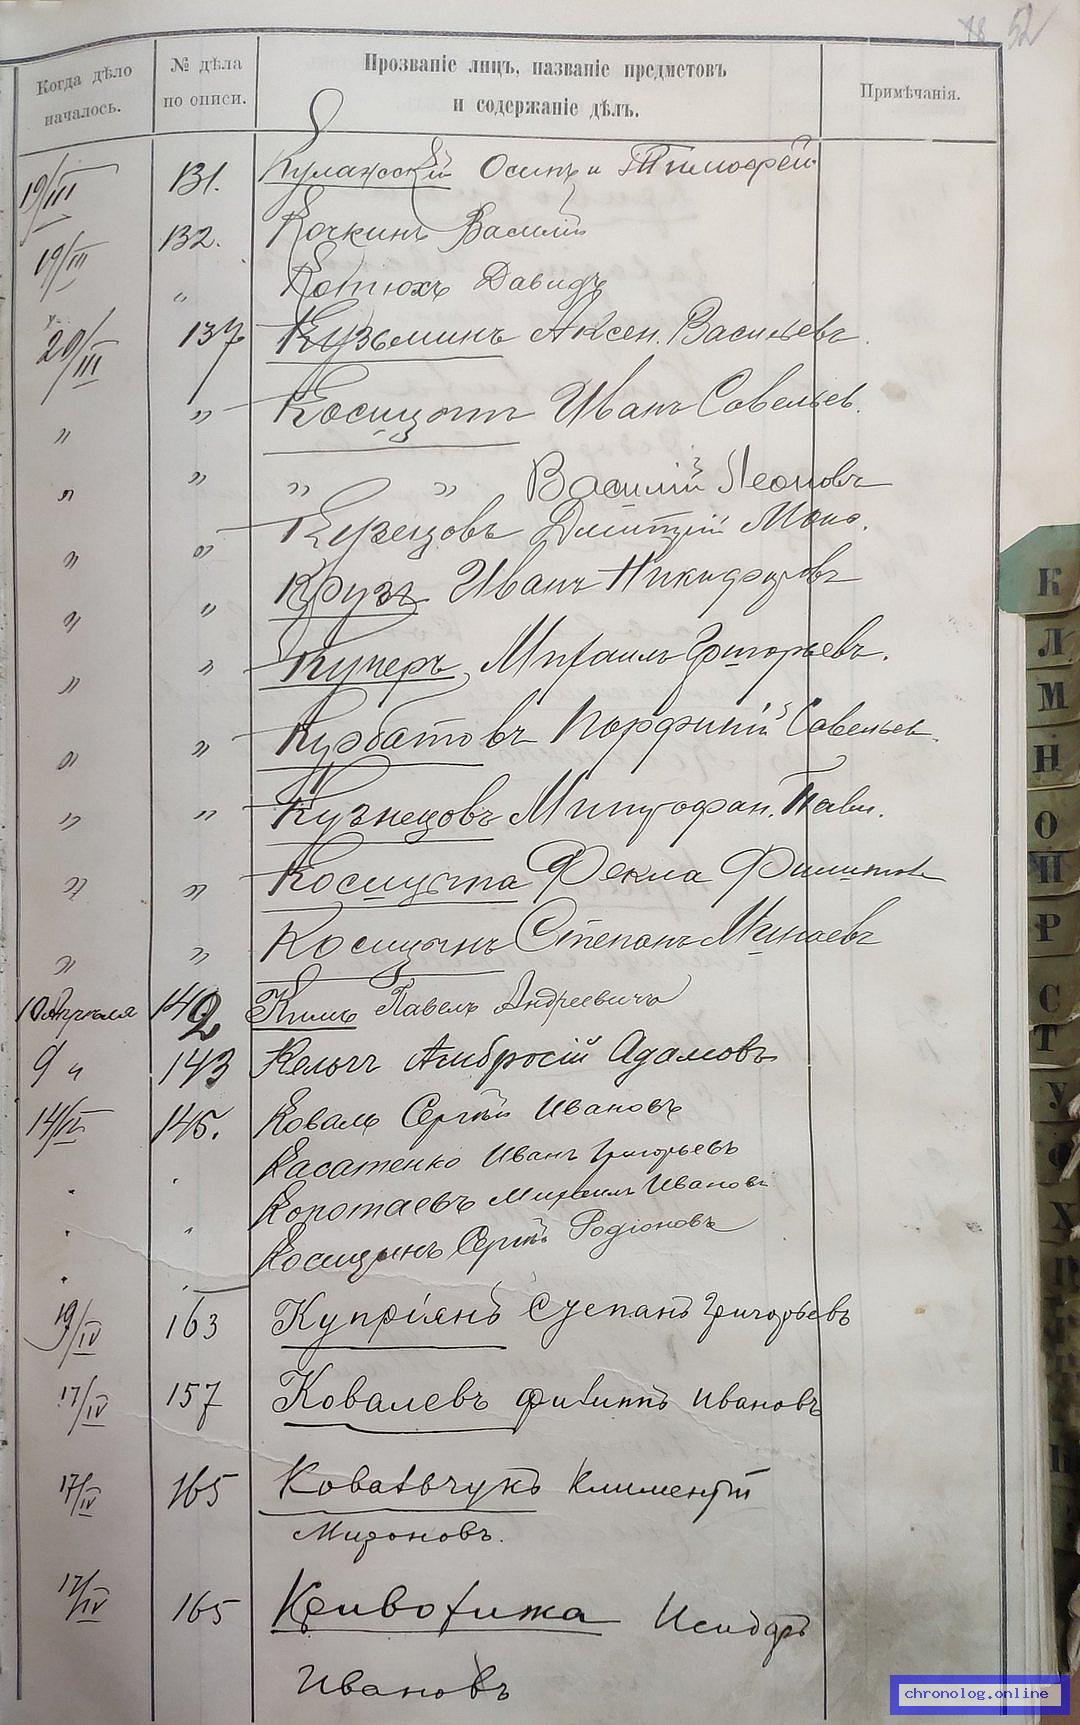 52
Когда дѣло началось.
№ дѣла по описи.
Прозваніе лицъ, названіе предметовъ и содержаніе дѣлъ.
Примѣчанія.
19/III 131. Осипъ и Тимофей
19/III 132. Кочкинъ Василій
" Котюхъ Давидъ
20/III 137 Кузьминъ Аксен. Васильевъ
" " Косицынъ Иванъ Савельев.
" " " " Василій Леоновъ
" " Кузнецовъ Дмитрій
" " Крузъ Иванъ Никифоровъ
" " Куперъ Михаилъ Григорьевъ.
" " Курбатовъ Порфирій Савельев.
" " Кузнецовъ Митрофан. Павл.
" " Косицына Фекла Филипов
" " Косицынъ Степанъ Минаевъ
10 Апрѣля 142 Кимъ Павелъ Андреевичъ
9 " 143 Амбросій Адамовъ
14/IV 145. Коваль Сергѣй Ивановъ
Касатенко Иванъ Григорьевъ
Коротаевъ Михаилъ Ивановъ
Косицынъ Сергѣй Родіоновъ
19/IV 163 Купріянъ Степанъ Григорьевъ
17/IV 157 Ковалевъ Филиппъ Ивановъ
17/IV 165 Ковальчукъ Климентій
Мироновъ.
17/IV 165 Криволижа Исидоръ
Ивановъ
К
Л
М
Н
О
П
Р
С
Т
У
Ф
Х
chronolog.online